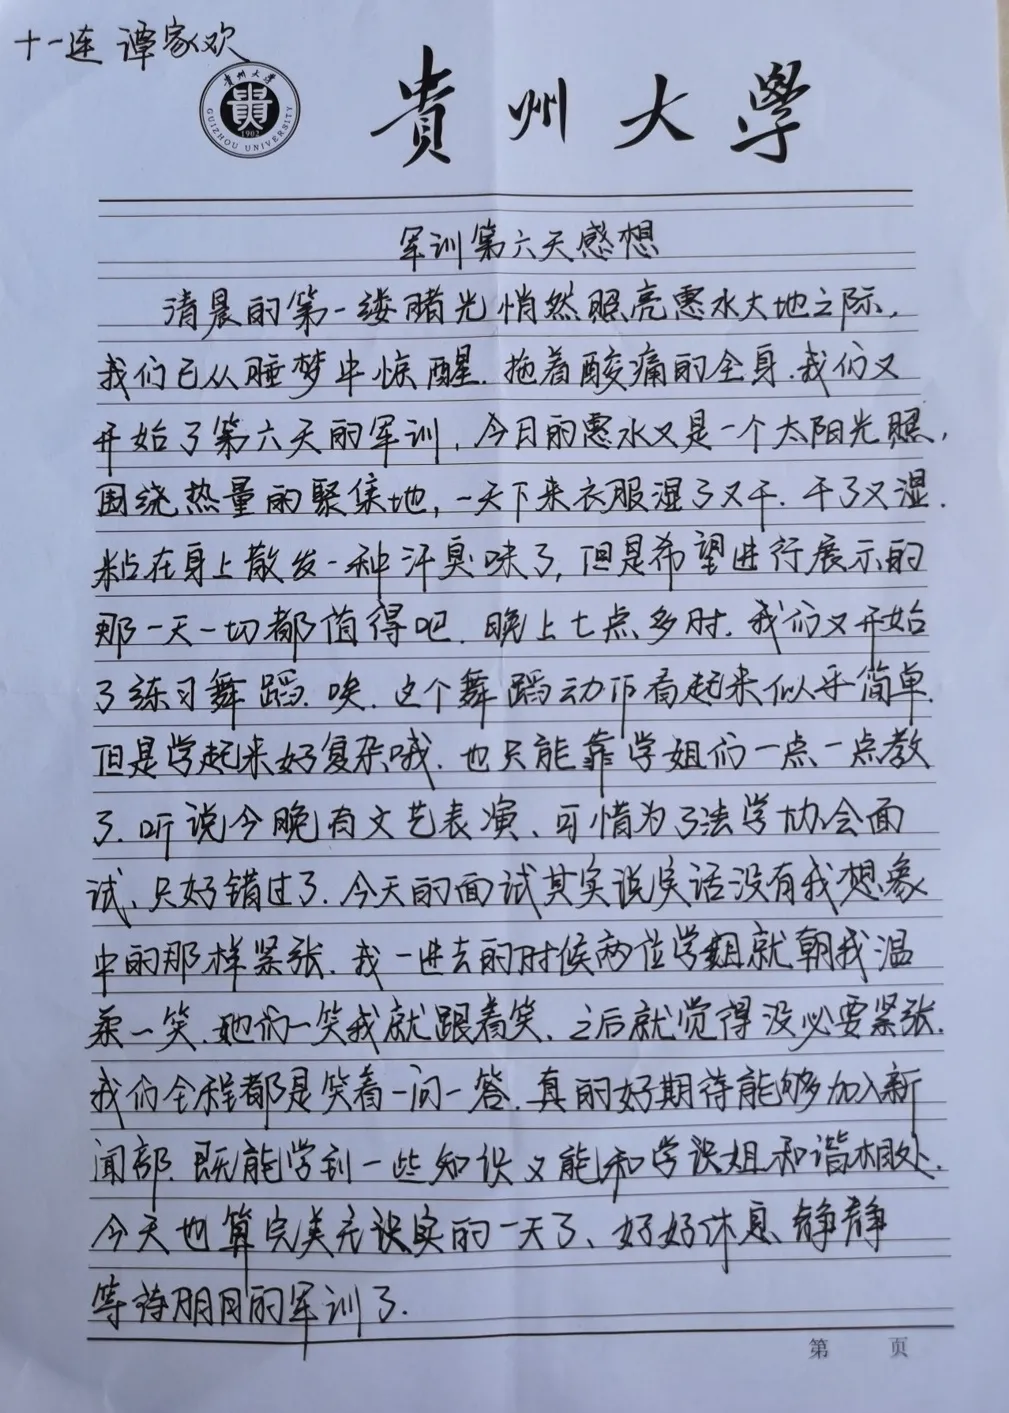 十一连 谭家欢
貴州大學
GUIZHOU UNIVERSITY
1902
貴州大學
军训第六天感想
清晨的第一缕曙光悄然照亮惠水大地之际,
我们已从睡梦中惊醒.拖着酸痛的全身.我们又
开始了第六天的军训,今日的惠水又是一个太阳光照,
围绕热量的聚集地,一天下来衣服湿了又干.干了又湿.
粘在身上散发一种汗臭味了,但是希望进行展示的
那一天一切都值得吧.晚上七点多时.我们又开始
了练习舞蹈.唉.这个舞蹈动作看起来似乎简单.
但是学起来好复杂哦.也只能靠学姐们一点一点教
了.听说今晚有文艺表演、可惜为了法学协会面
试、只好错过了.今天的面试其实说实话没有我想象
中的那样紧张.我一进去的时候两位学姐就朝我温
柔一笑.她们一笑我就跟着笑、之后就觉得没必要紧张.
我们全程都是笑着一问一答.真的好期待能够加入新
闻部.既能学到一些知识又能和学姐和谐相处.
今天也算完美充实的一天了、好好休息静静
等待明日的军训了.
第 页